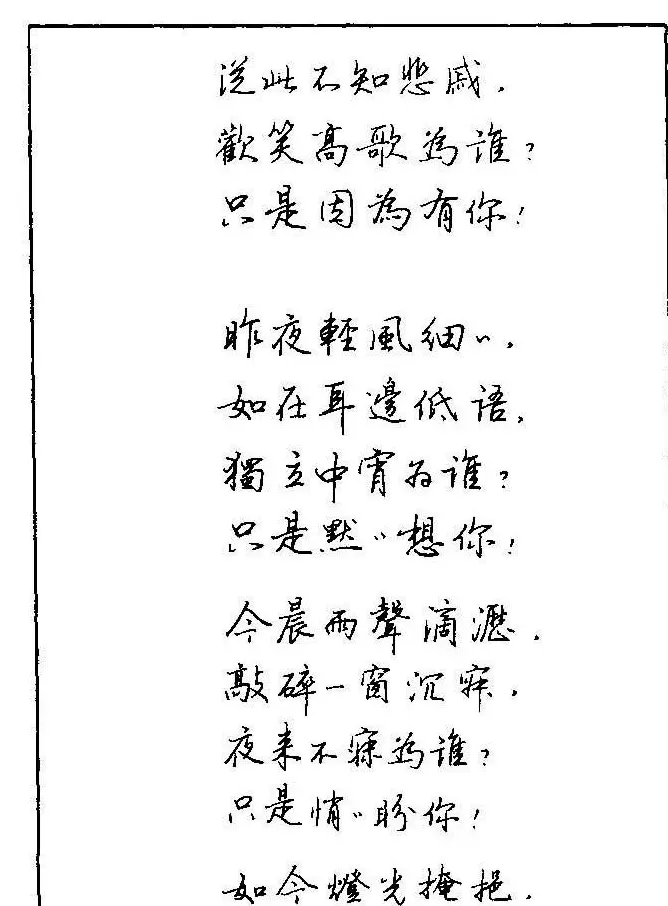 從此不知悲戚，
歡笑高歌為誰？
只是因為有你！
昨夜輕風細〃，
如在耳邊低语，
獨立中宵为誰？
只是默〃想你！
今晨雨聲滴瀝，
敲碎一窗沉寐，
夜来不寐為誰？
只是悄〃盼你！
如今燈光掩挹，